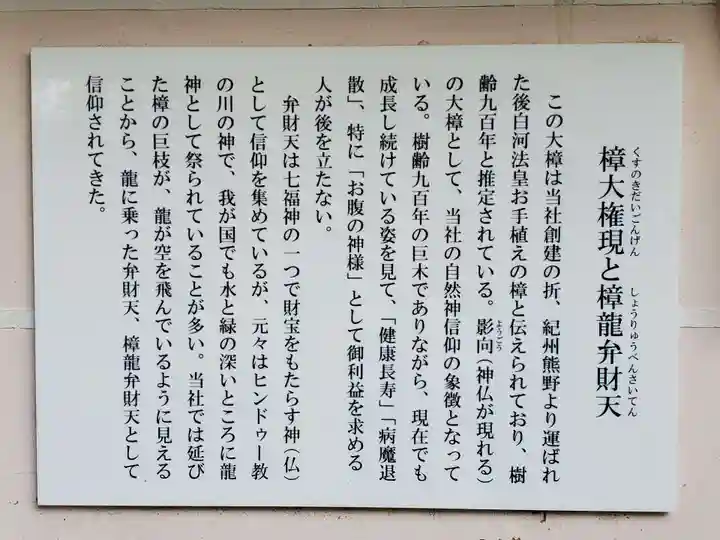 樟大権現と樟龍弁財天
くすのきだいごんげん しょうりゅうべんざいてん
この大樟は当社創建の折、紀州熊野より運ばれ
た後白河法皇お手植えの樟と伝えられており、樹
齢九百年と推定されている。影向(神仏が現れる)
ようごう
の大樟として、当社の自然神信仰の象徴となって
いる。樹齢九百年の巨木でありながら、現在でも
成長し続けている姿を見て、「健康長寿」「病魔退
散」、特に「お腹の神様」として御利益を求める
人が後を立たない。
弁財天は七福神の一つで財宝をもたらす神(仏)
として信仰を集めているが、元々はヒンドゥー教
の川の神で、我が国でも水と緑の深いところに龍
神として祭られていることが多い。当社では延び
た樟の巨枝が、龍が空を飛んでいるように見える
ことから、龍に乗った弁財天、樟龍弁財天として
信仰されてきた。